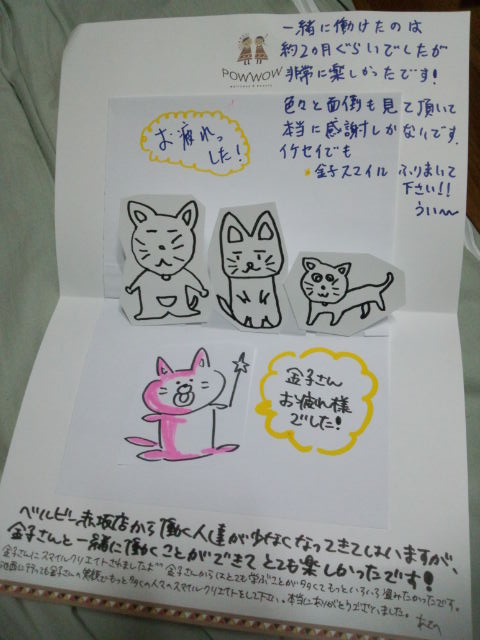 一緒に働けたのは
約2ヵ月ぐらいでしたが
非常に楽しかったです!
POWWOW
色々と面倒も見て頂いて
本当に感謝しかないです。
イケセイでも
金子スマイル ふりまいて
下さい!!
うい〜
お疲れっ
した!
金子さん
お疲れ様
でした!
ベルビー赤坂店から働く人達が少なくなってきてしまいますが、
金子さんと一緒に働くことができてとても楽しかったです!
金子さんにスマイルクリエイトされましたよ
金子さんの笑顔でもっと多くの人々へスマイルクリエイトをして下さい。本当にありがとうございました。